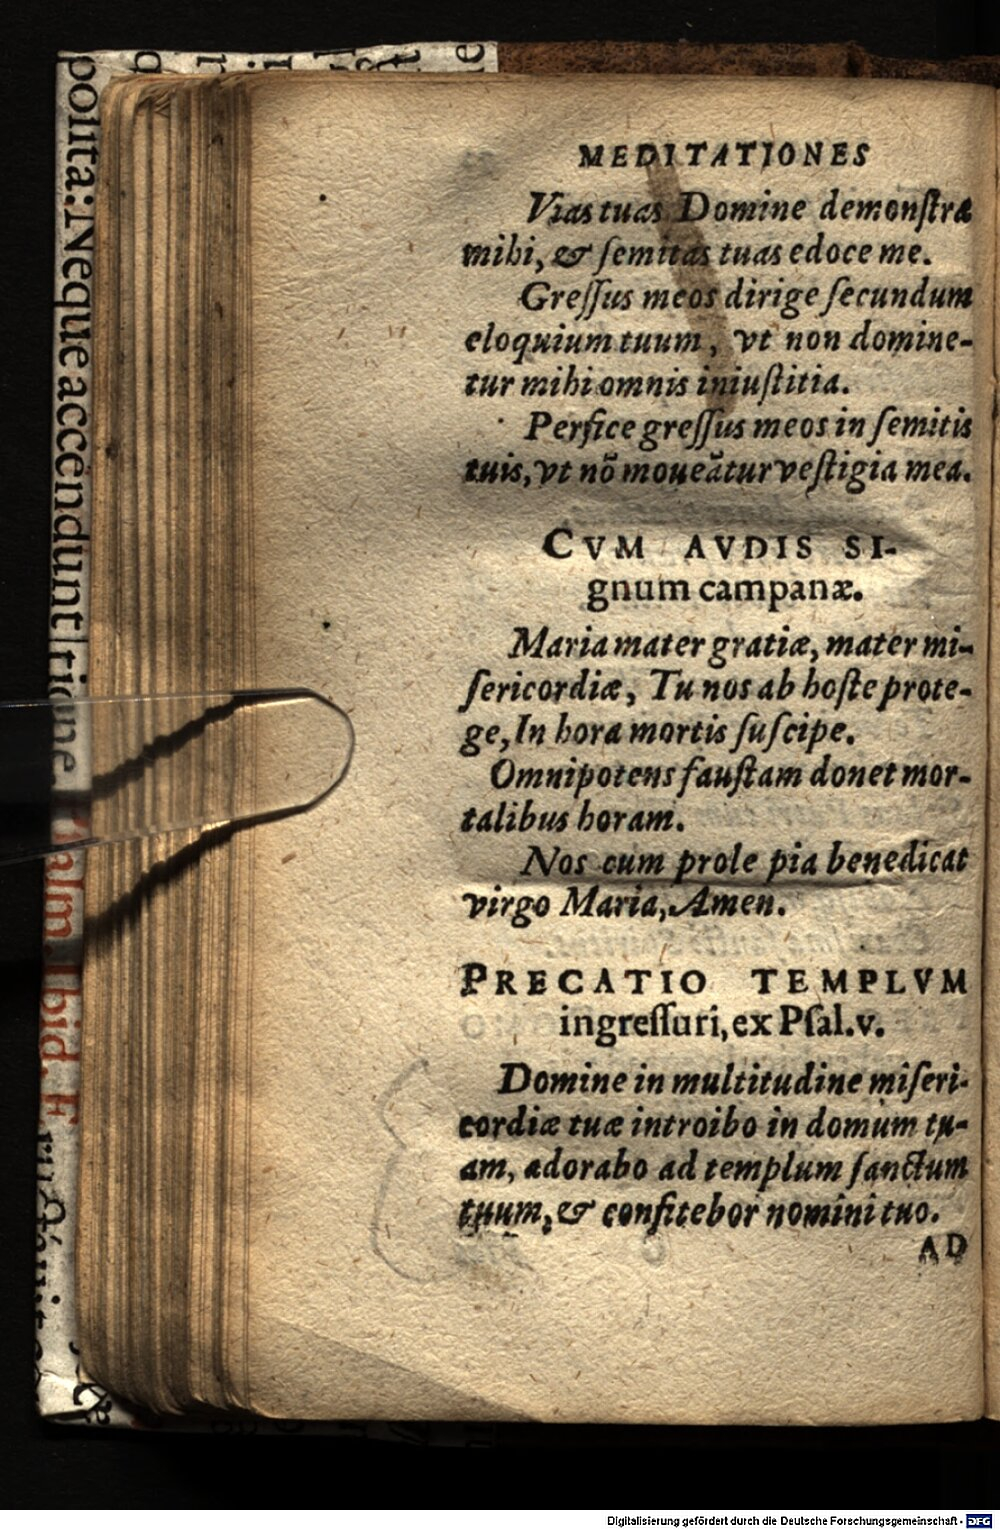 MEDITATIONES
Vias tuas Domine demonſtra
mihi, & ſemitas tuas edoce me.
Greſſus meos dirige ſecundum
eloquium tuum, vt non domine-
tur mihi omnis iniuſtitia.
Perfice greſſus meos in ſemitis
tuis, vt nō moueātur veſtigia mea.
CVM AVDIS SI-
gnum campanæ.
Maria mater gratiæ, mater mi-
ſericordiæ, Tu nos ab hoſte prote-
ge, In hora mortis ſuſcipe.
Omnipotens fauſtam donet mor-
talibus horam.
Nos cum prole pia benedicat
virgo Maria, Amen.
PRECATIO TEMPLVM
ingreſſuri, ex Pſal. v.
Domine in multitudine miſeri-
cordiæ tuæ introibo in domum tu-
am, adorabo ad templum ſanctum
tuum, & confitebor nomini tuo.
AD
polita: Neque accendunt
Pſalm. Ibid. E
Digitalisierung gefördert durch die Deutsche Forschungsgemeinschaft - DFG